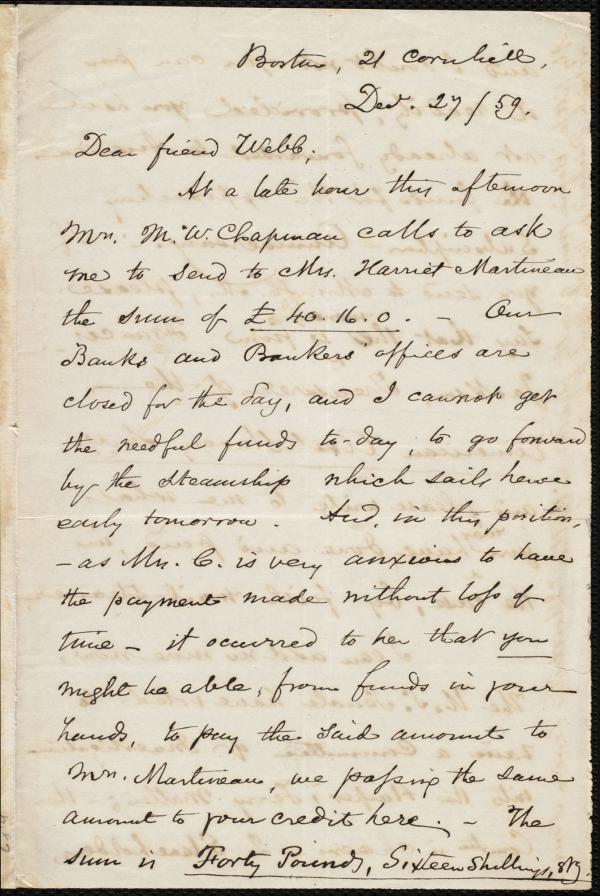 Boston, 21 Cornhill,
Dec. 27/59.
Dear friend Webb;
At a late hour this afternoon
Mrs. M. W. Chapman calls to ask
me to send to Mrs. Harriet Martineau
the sum of £ 40. 16. 0. – Our
Banks and Bankers' offices are
closed for the day, and I cannot get
the needful funds to-day, to go forward
by the steamship which sails hence
early tomorrow. And, in this position,
– as Mrs. C. is very anxious to have
the payment made without loss of
time – it occurred to her that you
might be able, from funds in your
hands, to pay the said amount to
Mrs. Martineau, we passing the same
amount to your credit here. – The
sum is Forty Pounds, Sixteen Shillings,